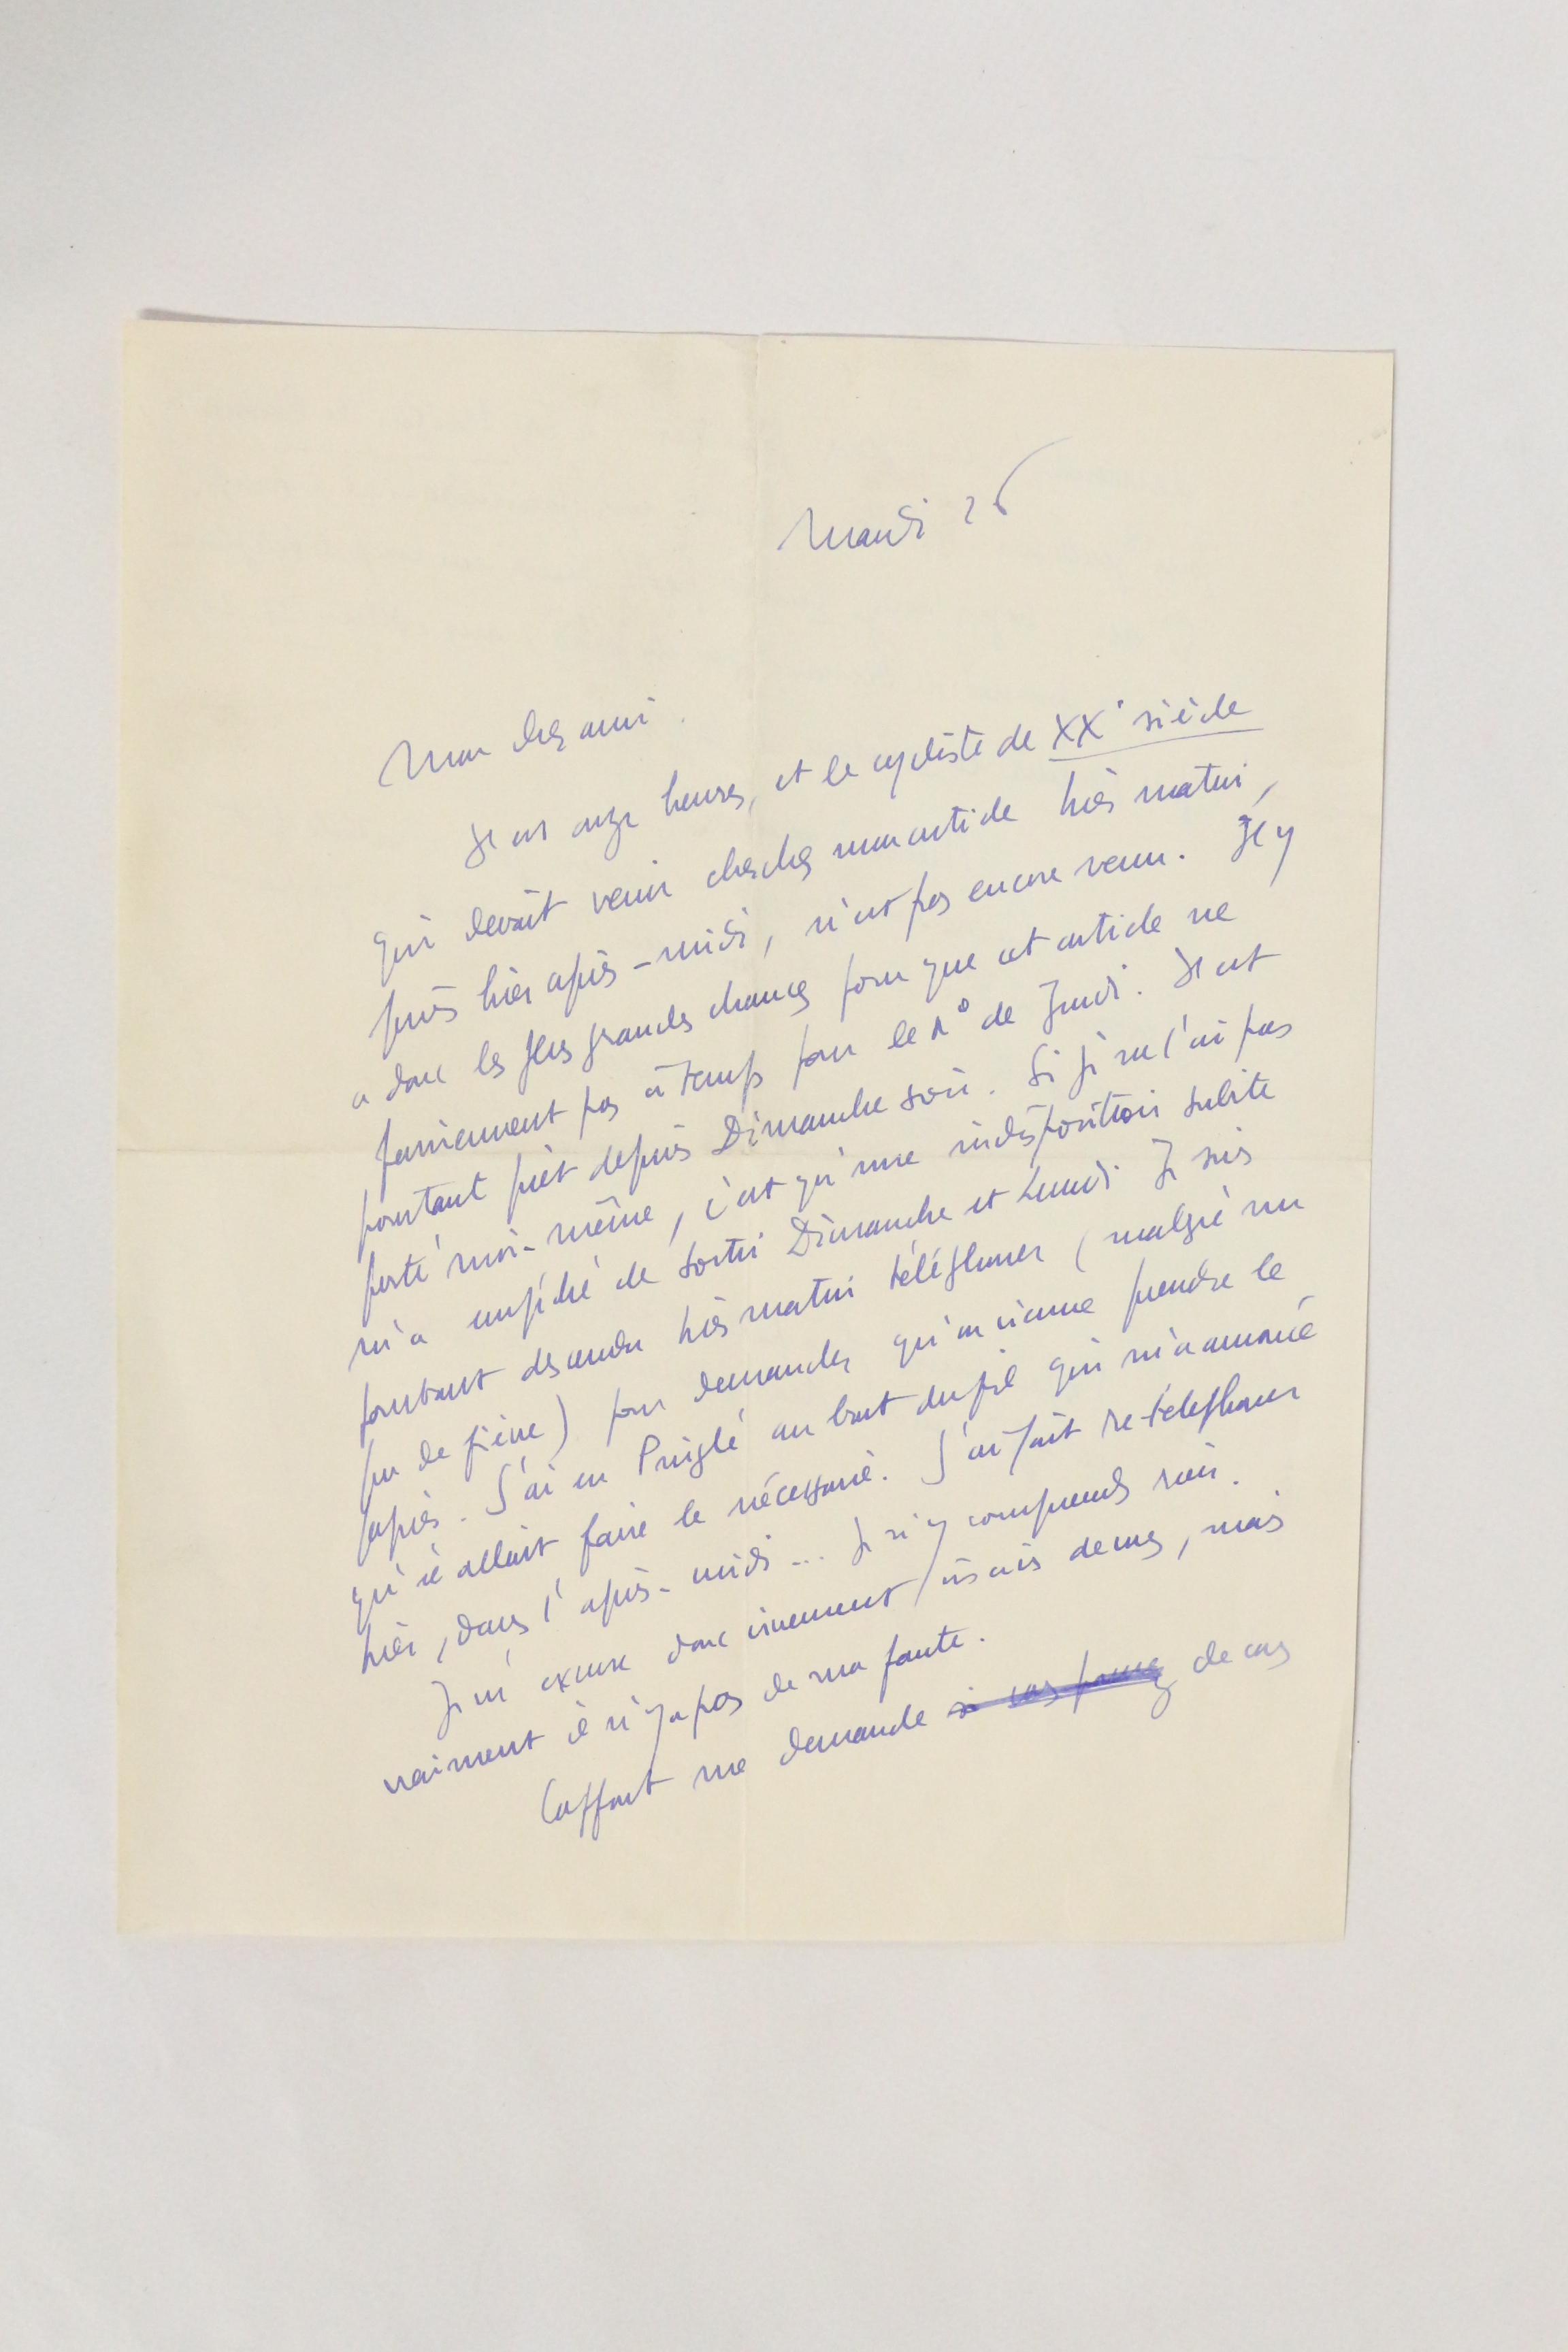 Mardi 26
Mon cher ami.
Il est onze heures, et le cycliste de XXe siècle
qui devait venir chercher mon article hier matin,
puis hier après-midi, n'est pas encore venu. Il y
a donc les plus grandes chances pour que cet article ne
parviennent pas à temps pour le n° de Jeudi. Il est
pourtant prêt depuis Dimanche soir. Si je ne l'ai pas
porté moi-même, c'est qu'une indisposition subite
m'a empêché de sortir Dimanche et Lundi. Je suis
pourtant descendu hier matin téléphoner (malgré un
peu de fièvre) pour demander qu'on vienne prendre le
papier. J'ai eu au bout du fil qui m'a annoncé
qu'il allait faire le nécessaire. J'ai fait re-téléphoner
hier, dans l'après-midi... Je n'y comprends rien.
Je m'excuse donc vivement vis à vis de vous, mais
vraiment il n'y a pas de ma faute.
me demande de vos